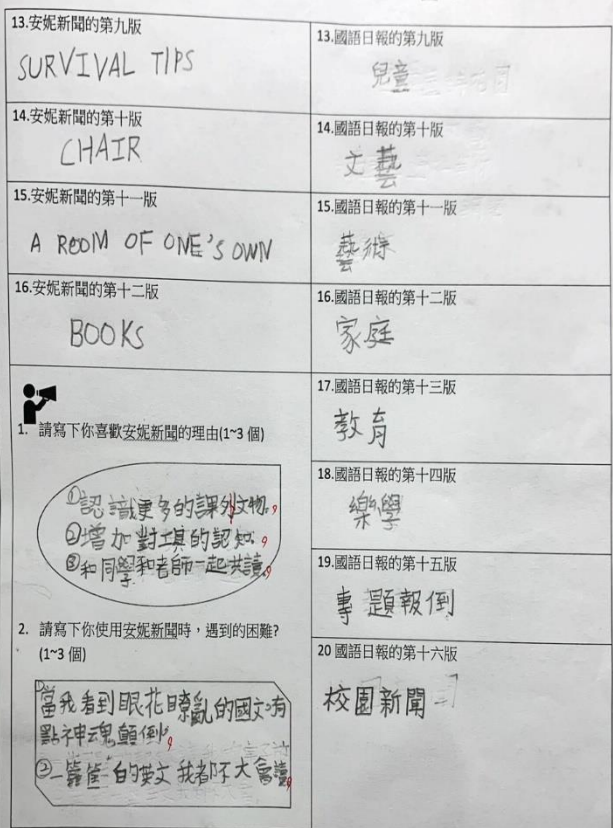 13.安妮新聞的第九版
SURVIVAL TIPS
14.安妮新聞的第十版
CHAIR
15.安妮新聞的第十一版
A ROOM OF ONE'S OWN
16.安妮新聞的第十二版
BOOKS
1. 請寫下你喜歡安妮新聞的理由(1~3 個)
①認識更多的課外文物。
②增加對工具的認知。
③和同學和老師一起共讀。
2. 請寫下你使用安妮新聞時，遇到的困難?
(1~3 個)
當我看到眼花瞭亂的國文，有
點神魂顛倒。
②一籮筐 的英文 我都不大會讀
13.國語日報的第九版
兒童
14.國語日報的第十版
文藝
15.國語日報的第十一版
藝術
16.國語日報的第十二版
家庭
17.國語日報的第十三版
教育
18.國語日報的第十四版
樂學
19.國語日報的第十五版
專題報倒
20 國語日報的第十六版
校園新聞